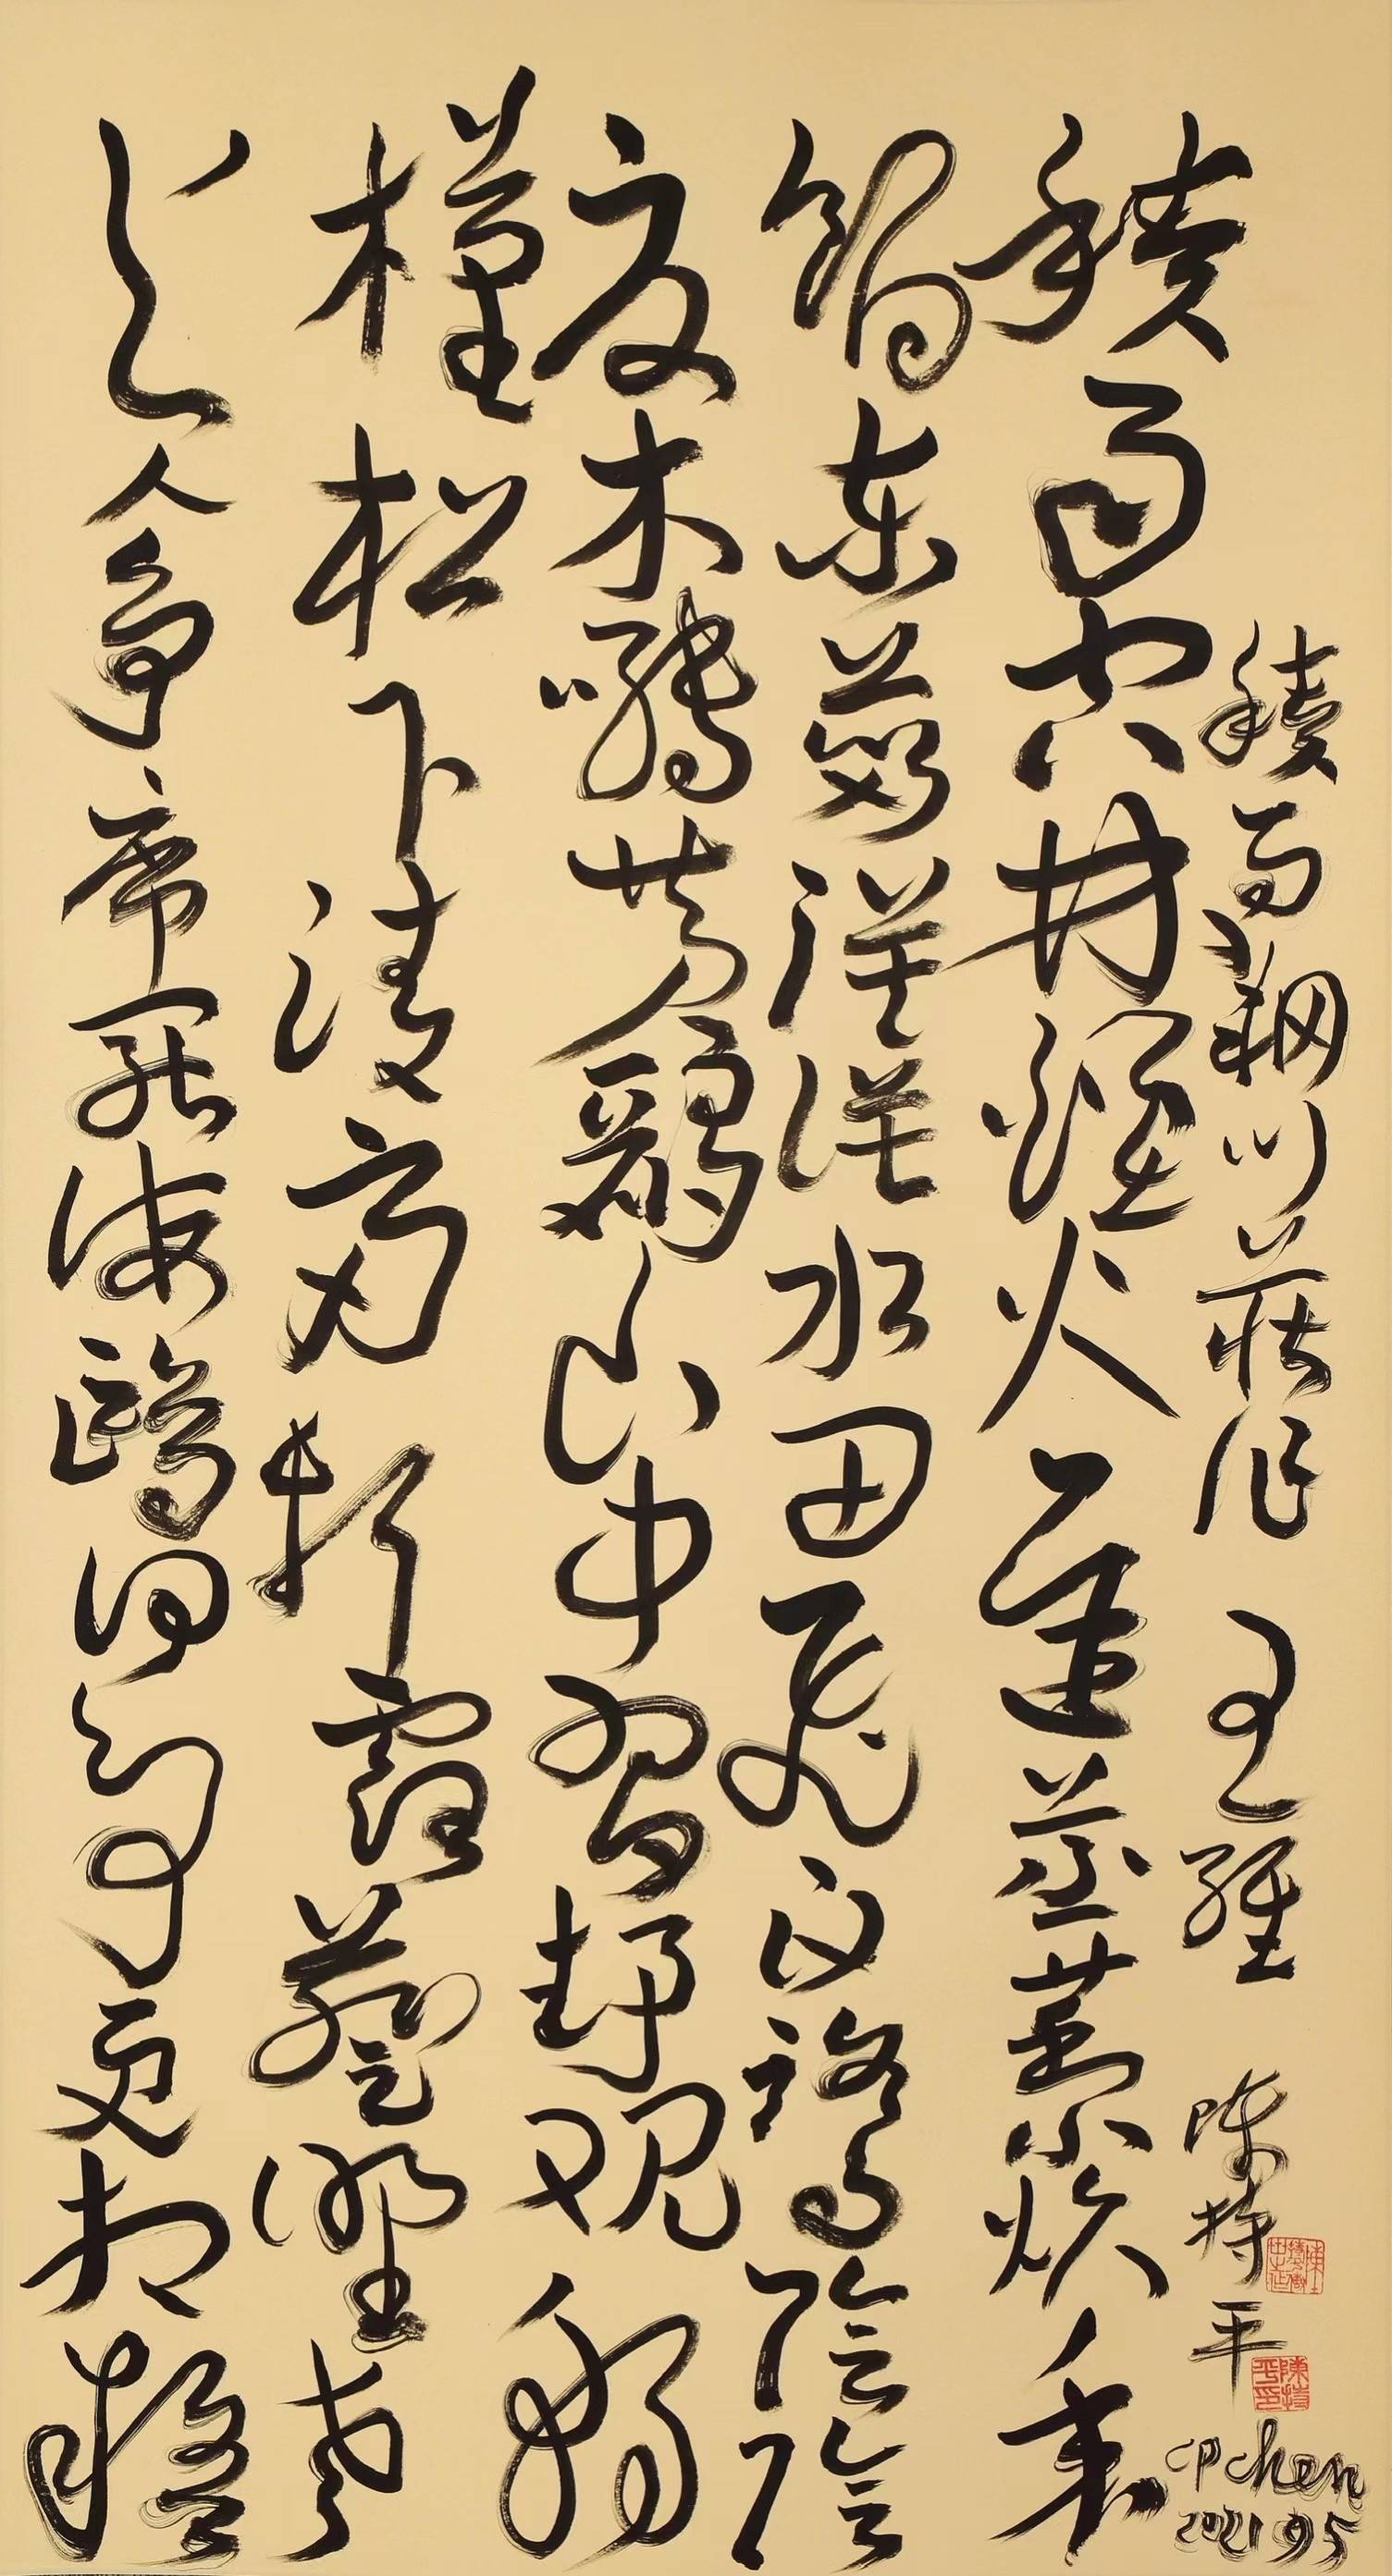 積雨輞川莊作 王維 陳持平
CP chen
2021 9 5
積雨空林煙火遲蒸藜炊黍
餉東菑漠漠水田飛白鷺陰陰
夏木囀黃鸝山中習靜觀朝
槿松下清齋折露葵野老
與人爭席罷海鷗何事更相疑
陳持平印